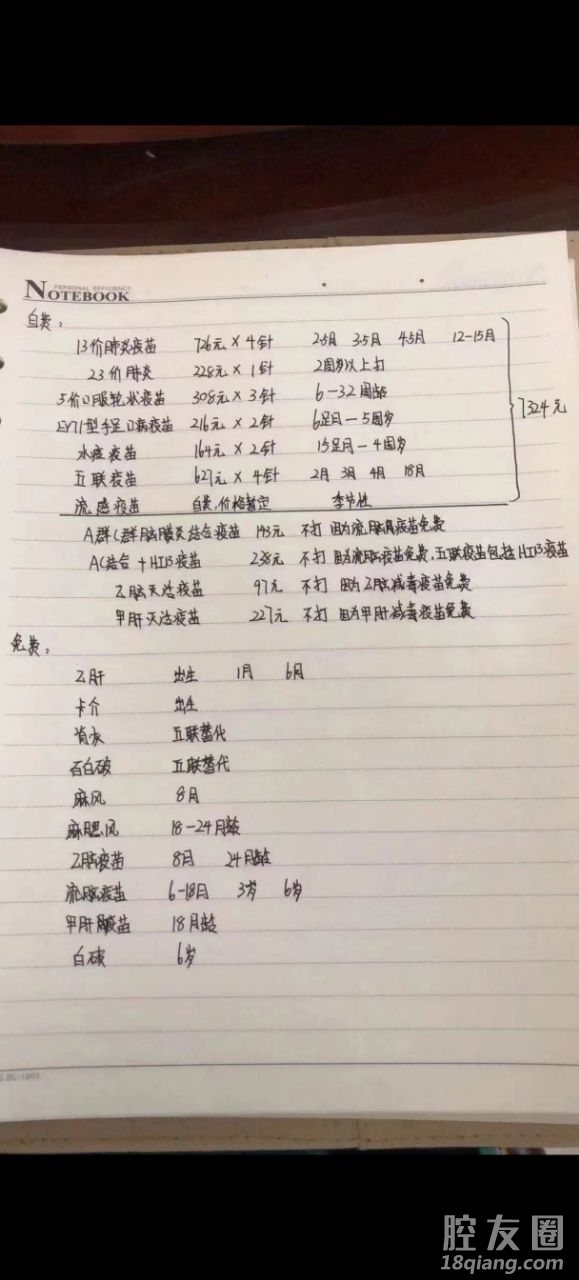 PERSONAL EFFICIENCY
NOTEBOOK
自费：
13价肺炎疫苗 726元×4针 2.5月 3.5月 4.5月 12-15月
23价肺炎 228元×1针 2周岁以上打
5价口服轮状疫苗 308元×3针 6-32周龄
EV71型手足口病疫苗 216元×2针 6足月-5周岁
水痘疫苗 164元×2针 15足月-4周岁
五联疫苗 627元×4针 2月 3月 4月 18月
7324元
流感疫苗 自费,价格暂定 季节性
A群C群脑膜炎结合疫苗 143元 不打 因为流脑疫苗免费
AC结合+HIB疫苗 238元 不打 因为流脑疫苗免费,五联疫苗包括HIB疫苗
乙脑灭活疫苗 97元 不打 因为乙脑减毒疫苗免费
甲肝灭活疫苗 227元 不打 因为甲肝减毒疫苗免费
免费：
乙肝 出生 1月 6月
卡介 出生
五联替代
百白破 五联替代
麻风 8月
麻腮风 18-24月龄
乙脑疫苗 8月 24月龄
流脑疫苗 6-18月 3岁 6岁
甲肝疫苗 18月龄
白破 6岁
腔友圈
18qiang.com